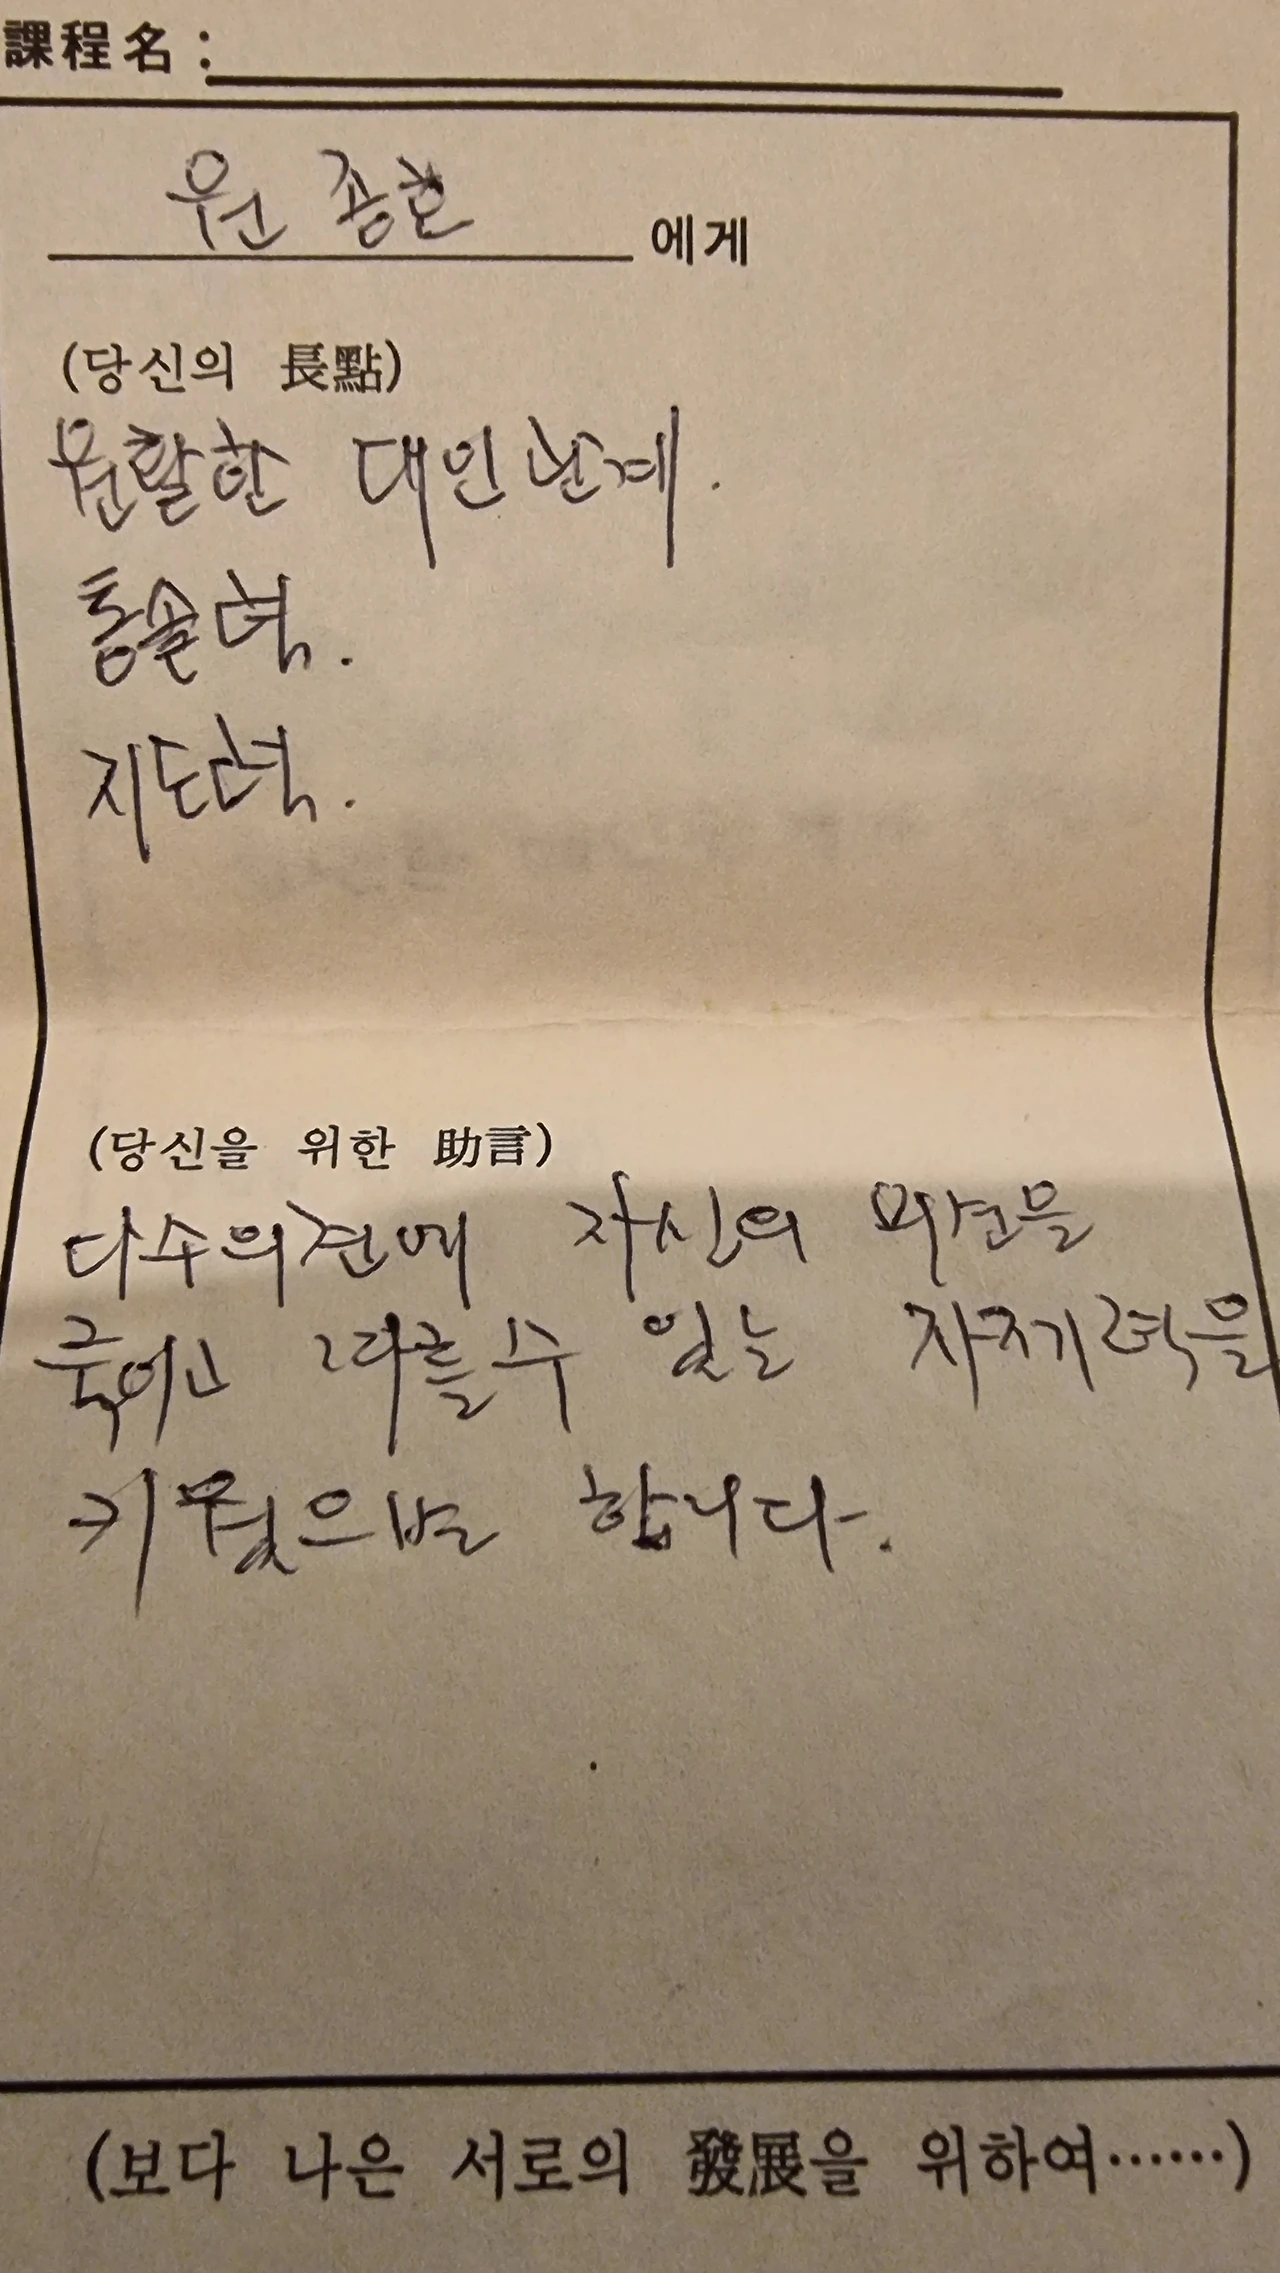 課程名:
원종호 에게
(당신의 長點)
원활한 대인관계.
통솔력.
지도력.
(당신을 위한 助言)
다수의견에 자신의 의견을
죽이고 따를수 있는 자제력을
키웠으면 합니다.
(보다 나은 서로의 發展을 위하여……)